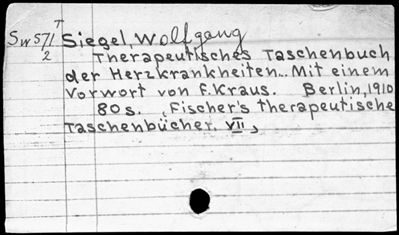 T
Sw571 Siegel, Wolfgang
2 Therapeutisches Taschenbuch
der Herzkrankheiten.. Mit einem
Vorwort von F. Kraus. Berlin, 1910
80 s. (Fischer's therapeutische
Taschenbücher. VII)